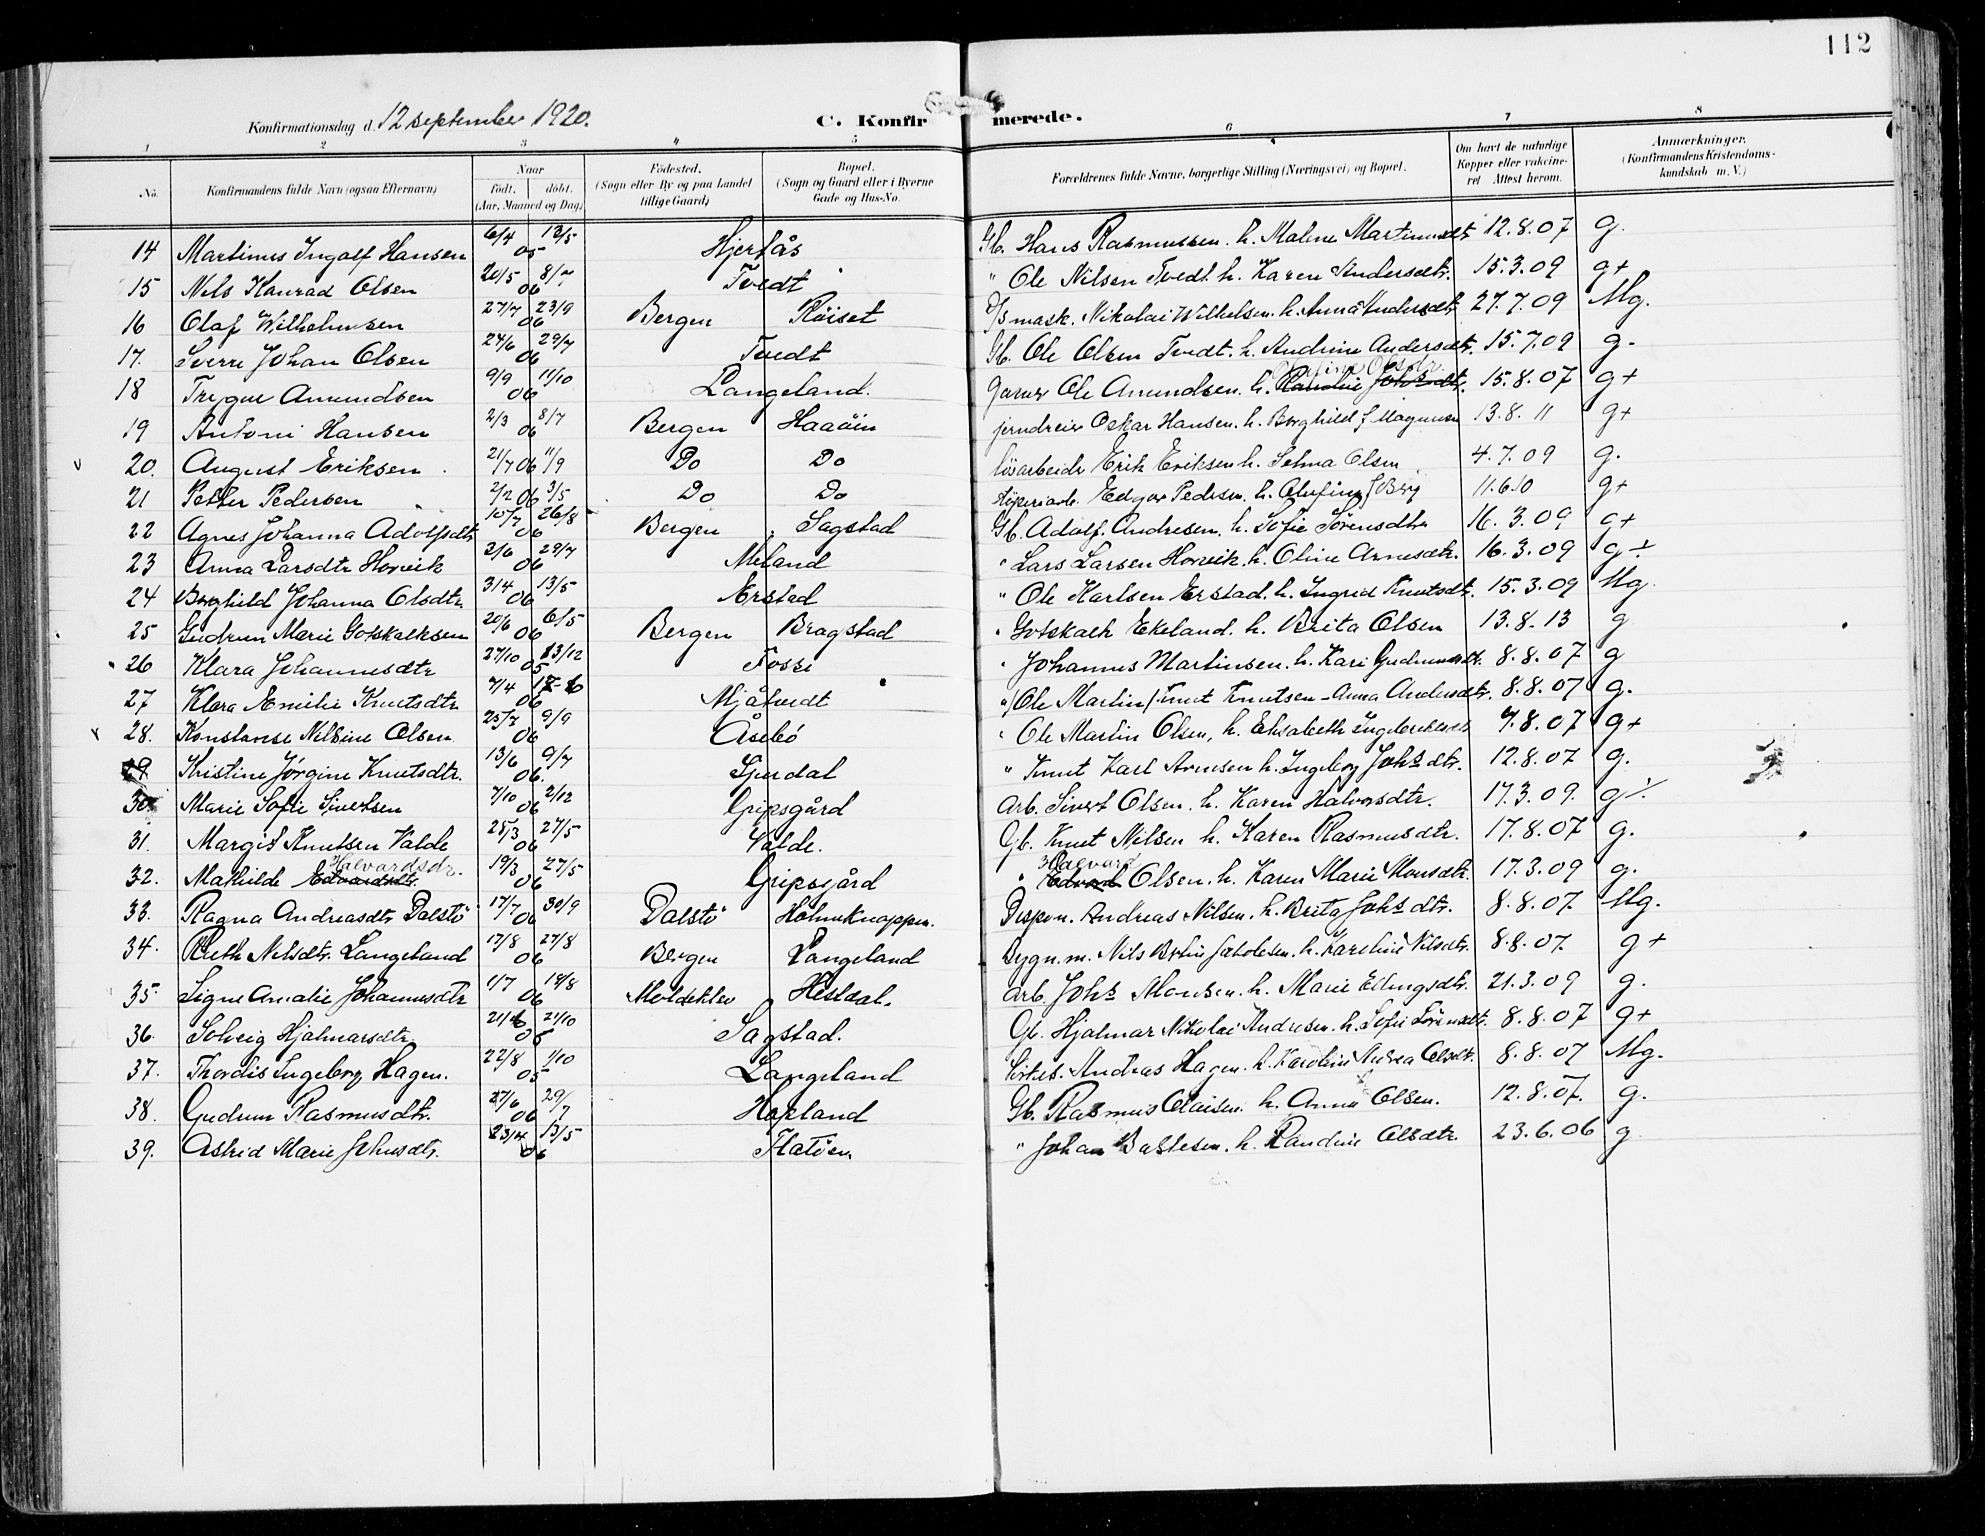 112
Konfirmationsdag d. 12 september 1920. C. Konfirmerede.
1 2 3 4 5 6 7 8
No. Konfirmandens fulde Navn (ogsaa Efternavn) Naar født, døbt. (Aar, Maaned og Dag) Födested. (Sogn eller By og paa Landet tillige Gaard) Bopæl. (Sogn og Gaard eller i Byerne Gade og Hus-No. Forældrenes fulde Navne, borgerlige Stilling (Næringsvei) og Bopæl. Om havt de naturlige Kopper eller vakcineret Attest herom. Anmærkninger. (Konfirmandens Kristendomskundskab m. V.)
14 Martinus Ingolf Hansen 6/4 05 13/5 Hjertås Gb. Hans Rasmussen. h. Maline Martinusdtr 12.8.07 g.
15 Nils Konrad Olsen 20/5 06 8/7 Tvedt " Ole Nilsen Tvedt. h. Karen Andersdtr. 15.3.09 g+
16 Olaf Wilhelmsen 27/7 06 23/9 Bergen Röiset D/S mask. Nikolai Wilhelsen. h. Anna Andersdtr 27.7.09 Mg.
17. Sverre Johan Olsen 24/6 06 29/7 Tvedt Gb. Ole Olsen Tvedt. h. Andrine Andersdtr. 15.7.09 g.
18 Trygve Amundsen 9/9 06 11/10 Langeland. Garver Ole Amundsen. h. Olsdtr. 15.8.07 g+
19 Antoni Hansen 2/3 06 8/7 Bergen Haaöen jerndreier Oskar Hansen. h. Borghild f Magnusen 13.8.11 g+
20. August Eriksen 21/7 06 11/9 Do Do lösarbeidr Erik Eriksen h. Selma Olsen 4.7.09 g.
21 Petter Pedersen 2/2 06 3/5 Do Do Edgar Pedersen. h. Olufine f Berg 11.6.10 g+
22 Agnes Johanna Adolfsdtr 10/7 06 26/8 Bergen Sagstad Gb. Adolf Andresen. h. Sofie Sörensdtr 16.3.09 g+
23 Anna Larsdtr Horvik 2/6 06 29/7 Meland " Lars Larsen Horvik. h. Oline Arnesdtr. 16.3.09 g÷
24 Borghild Johanna Olsdtr. 3/4 06 13/5 Erstad " Ole Karlsen Erstad. h. Ingrid Knutsdtr. 15.3.09 Mg.
25 Gudrun Marie Gotskalksen 20/6 06 6/5 Bergen Bragstad " Gotskalk Ekeland. h. Brita Olsen 13.8.13 g
26 Klara Johannesdtr 27/10 05 13/12 Fosse " Johannes Martinsen. h. Kari Gudmundsdtr. 8.8.07 g
27 Klara Emilie Knutsdtr 7/4 06 Mjåtvedt " (Ole Martin) Knut Knutsen - Anna Andersdtr. 8.8.07 g.
28. Konstanse Nilsine Olsen 25/7 06 9/9 Åsebö " Ole Martin Olsen, h. Elisabeth Ingebrektsdtr 7.8.07 g+
29 Kristine Jørgine Knutsdtr. 13/6 06. 9/7 Sjurdal " Knut Karl Arnesen h. Ingeborg Johsdtr. 12.8.07 g.
30 Marie Sofie Sivertsen 7/10 06 2/12 Gripsgård Arb. Sivert Olsen. h. Karen Halvorsdtr. 17.3.09. g÷
31. Margit Knutsen Valde 25/3 06 27/5 Valde. Gb. Knut Nilsen h. Karen Rasmusdtr. 17.8.07 g.
32. Mathilde Edvardsdtr. Halvardsdr. 19/3 06 27/5 Gripsgård " Edvard Halvard Olsen. h. Karen Marie Monsdtr. 17.3.09 g.
33. Ragna Andreasdtr Dalstö 17/7 06 30/9 Dalstö Holmeknappen. Dispon. Andreas Nilsen. h. Brita Johsdtr. 8.8.07. Mg.
34. Ruth Nilsdtr. Langeland 17/8 06 27/8 Bergen Langeland Bygn.m. Nils Jakobsen. h. Karoline Nilsdtr. 8.8.07. g+
35. Signe Amalie Johannesdtr 1/7 06 19/8 Moldeklev Hestdal. Arb. Johs Monsen. h. Marie Ellingsdtr. 21.3.09 g.
36. Solveig Hjalmarsdtr 06 21/10 Sagstad. Gb. Hjalmar Nikolai Andresen. h. Sofie Sörensdtr. 8.8.07 g+
37. Thordis Ingeborg Hagen. 22/8 05 1/10 Langeland Kirkes. Andreas Hagen. h. Karoline Andrea Olsdtr. 8.8.07 Mg.
38. Gudrun Rasmusdtr. 27/6 06 29/7 Hopland Gb. Rasmus Olaisen. h. Anna Olsen. 12.8.07. g.
39. Astrid Marie Johnsdtr. 23/4 06 13/5 Flatöen " Johan Bastesen. h. Randine Olsdtr. 23.6.06 g.